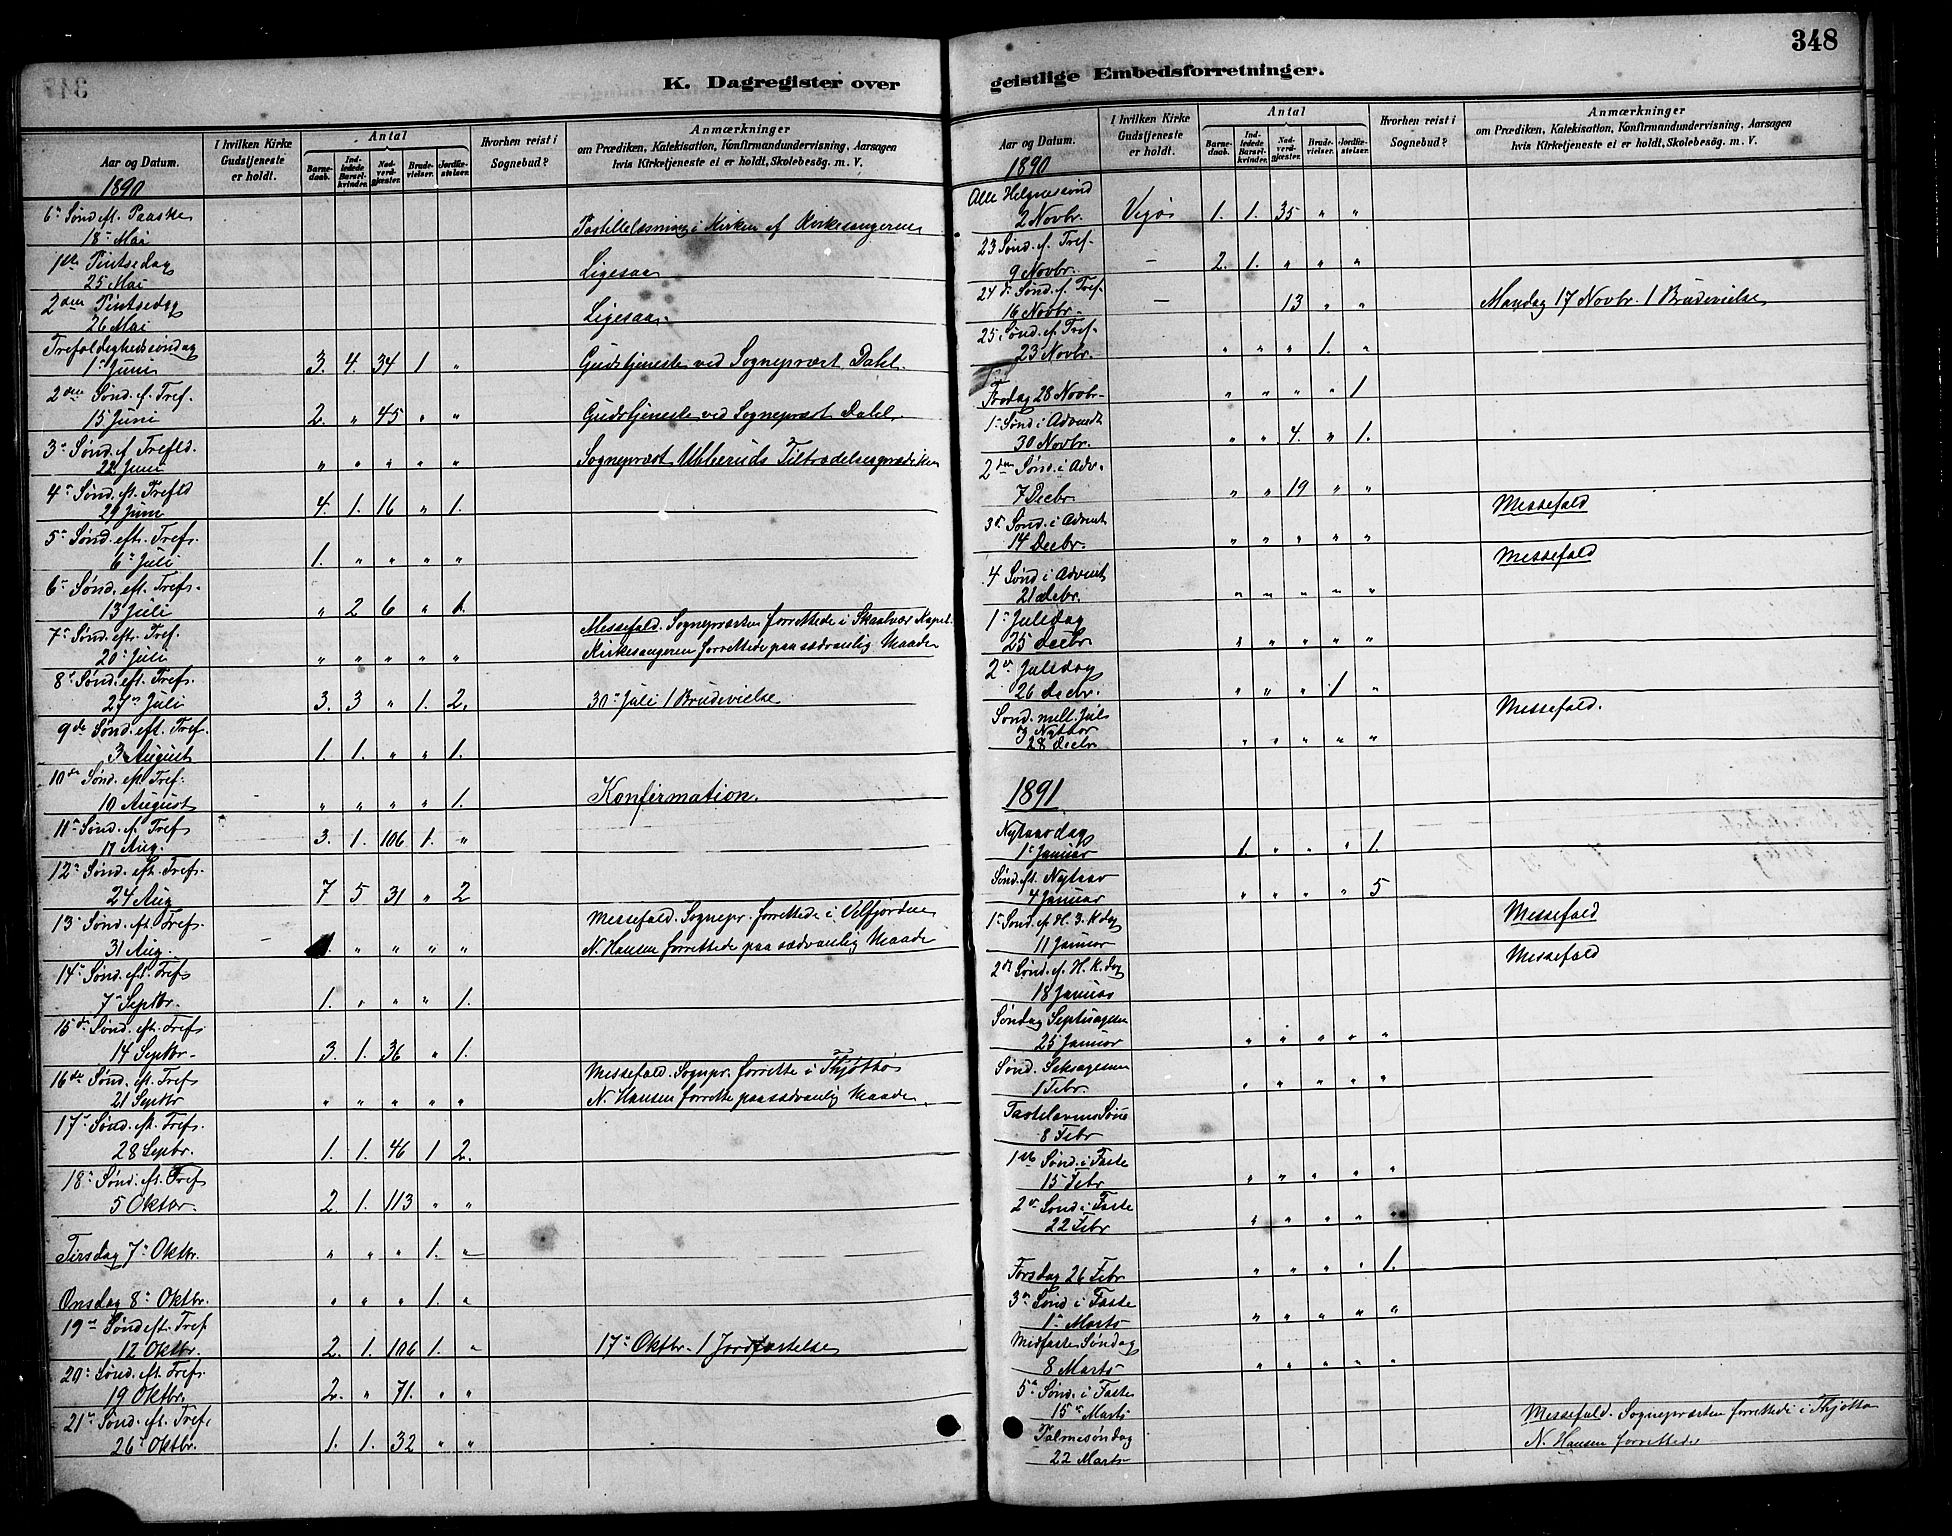 348
K. Dagregister over geistlige Embedsforretninger.
Aar og Datum.
I hvilken Kirke Gudstjeneste er holdt.
Antal
Barnedaab.
Indledede Barselkvinder.
Nadverdgjester.
Brudevielser.
Jordfæstelser.
Hvorhen reist i Sognebud?
Anmærkninger
om Prædiken, Katekisation, Konfirmandundervisning, Aarsagen
hvis Kirketjeneste ei er holdt, Skolebesøg. m. V.
1890
6te Sønd. eft. Paaske
18de Mai Postillelæsning i Kirken af Kirkesangeren
1ste Pintsedag
25 Mai Ligesaa
2den Pintsedag
26 Mai Ligesaa
Trefoldighedssøndag
1ste Juni 3. 4. 34 1 " Gudstjeneste ved Sogneprest Dahl.
2den Sønd. ef. Tref.
15 Juni 2. " 45 " " Gudstjeneste ved Sogneprest Dahl.
3de Sønd. ef. Trefld.
22 Juni " " " " " Sogneprest Utheruds Tiltrædelsesprædiken
4de Sønd. eft. Trefld
29 Juni 4. 1. 16 " 1.
5te Sønd. eft. Tref.
6te Juli 1. " " " "
6te Sønd. eft. Tref.
13 Juli " 2 6 " 1.
7de Sønd. eftr. Tref.
20de Juli " " " " "
Messefald. Sognepræsten forrettede i Skaalvær Kapel.
Kirkesangeren forrettede paa sædvanlig Maade
8de Sønd. eft. Tref.
27de Juli 3. 3 " 1. 2. 30te Juli 1 Brudevielse
9de Sønd. eft. Tref.
3 August 1. 1. " " 1.
10de Sønd. eft. Tref.
10 August " " " " 1. Konfirmation.
11te Sønd. ef. Tref
17 Aug. 3. 1. 106 1. "
12te Sønd. eft. Tref.
24 Aug 7 5 31 " 2
13de Sønd. eft. Tref.
31 Aug. " " " "
Messefald. Sognepr. forrettede i Velfjorden
N. Hansen forrettede paa sædvanlig Maade
14de Sønd. eft. Tref
7de Septbr. 1. " " " 1.
15de Sønd. eft. Tref
14 Septbr. 3. 1. 36 " 1.
16de Sønd. eft. Tref
21 Septbr " " " " "
Messefald. Sognepr. forrette i Thjøttø
N. Hansen forrette paa sædvanlig Maade.
17de Sønd. eft. Tref.
28 Sepbr. 1. 1. 46 1 2.
18de Sønd. eft. Tref
5 Oktbr. 2. 1. 113 " "
Tirsdag 7de Oktbr. " " " 1. "
Onsdag 8de Oktbr. " " " 1. "
19de Sønd eft. Tref
12 Oktbr. 2. 1. 106 1. " 17de Oktbr. 1 Jordfæstelse
20de Sønd. eft. Tref.
19 Oktbr. 2. " 71. " "
21de Sønd. eft. Tref.
26de Oktbr. 1. 1. 32 " "
Aar og Datum.
I hvilken Kirke Gudstjeneste er holdt.
Antal
Barnedaab.
Indledede Barselkvinder.
Nadverdgjester.
Brudevielser.
Jordfæstelser.
Hvorhen reist i Sognebud?
Anmærkninger
om Prædiken, Katekisation, Konfirmandundervisning, Aarsagen
hvis Kirketjeneste ei er holdt, Skolebesøg. m. V.
1890
Alle Helgensønd
2 Novbr. Vegøs 1. 1. 35 " "
23 Sønd. ef. Tref.
9 Novbr. - 2. 1. " " "
24de Sønd. ef. Tref.
16 Novbr. - 13 " " Mandag 17 Novbr. 1 Brudevielse
25 Sønd. ef. Tref.
23 Novbr. " " " 1. "
Fredag 28 Novbr. " " " " 1
1ste Sønd i Advendt
30 Novbr. " " 4. " 1.
2den Sønd. i Adv.
7 Decbr " " 19 " "
3de Sønd. i Advent Messefald
14 Decbr. " " " " "
4 Sønd i Advent Messefald
21 Decbr. " " " " "
1ste Juledag
25 Decbr " " " " "
2den Juledag
26 Decbr. " " " 1 "
Sønd. mell. Jul Messefald.
og Nytaar
28 Decbr " " " " "
1891
Nytaarsdag
1ste Januar 1. " " " 1.
Sønd. eft. Nytaar
4 Januar " " " " 5
1ste Sønd. ef. H. 3. K. dag Messefald
11 Januar
2den Sønd. ef. H. K. dag Messefald
18 Januar
Søndag Septuagesim
25 Januar " " " " "
Sønd. Seksagesim
1 Febr. " " " " "
Fastelavns Sønd
8 Febr
1ste Sønd. i Faste
15 Febr " " " " "
2den Sønd i Faste
22 Febr " " " " "
Torsdag 26 Febr " " " " 1.
3de Sønd i Faste
1ste Marts " " " " "
Midfaste Søndag
8 Marts " " " " "
5te Sønd. i Faste
15de Marts
Palmesøndag
22 Marts
Messefald. Sognepræsten forrettede i Thjøttø
N. Hansen forrettede